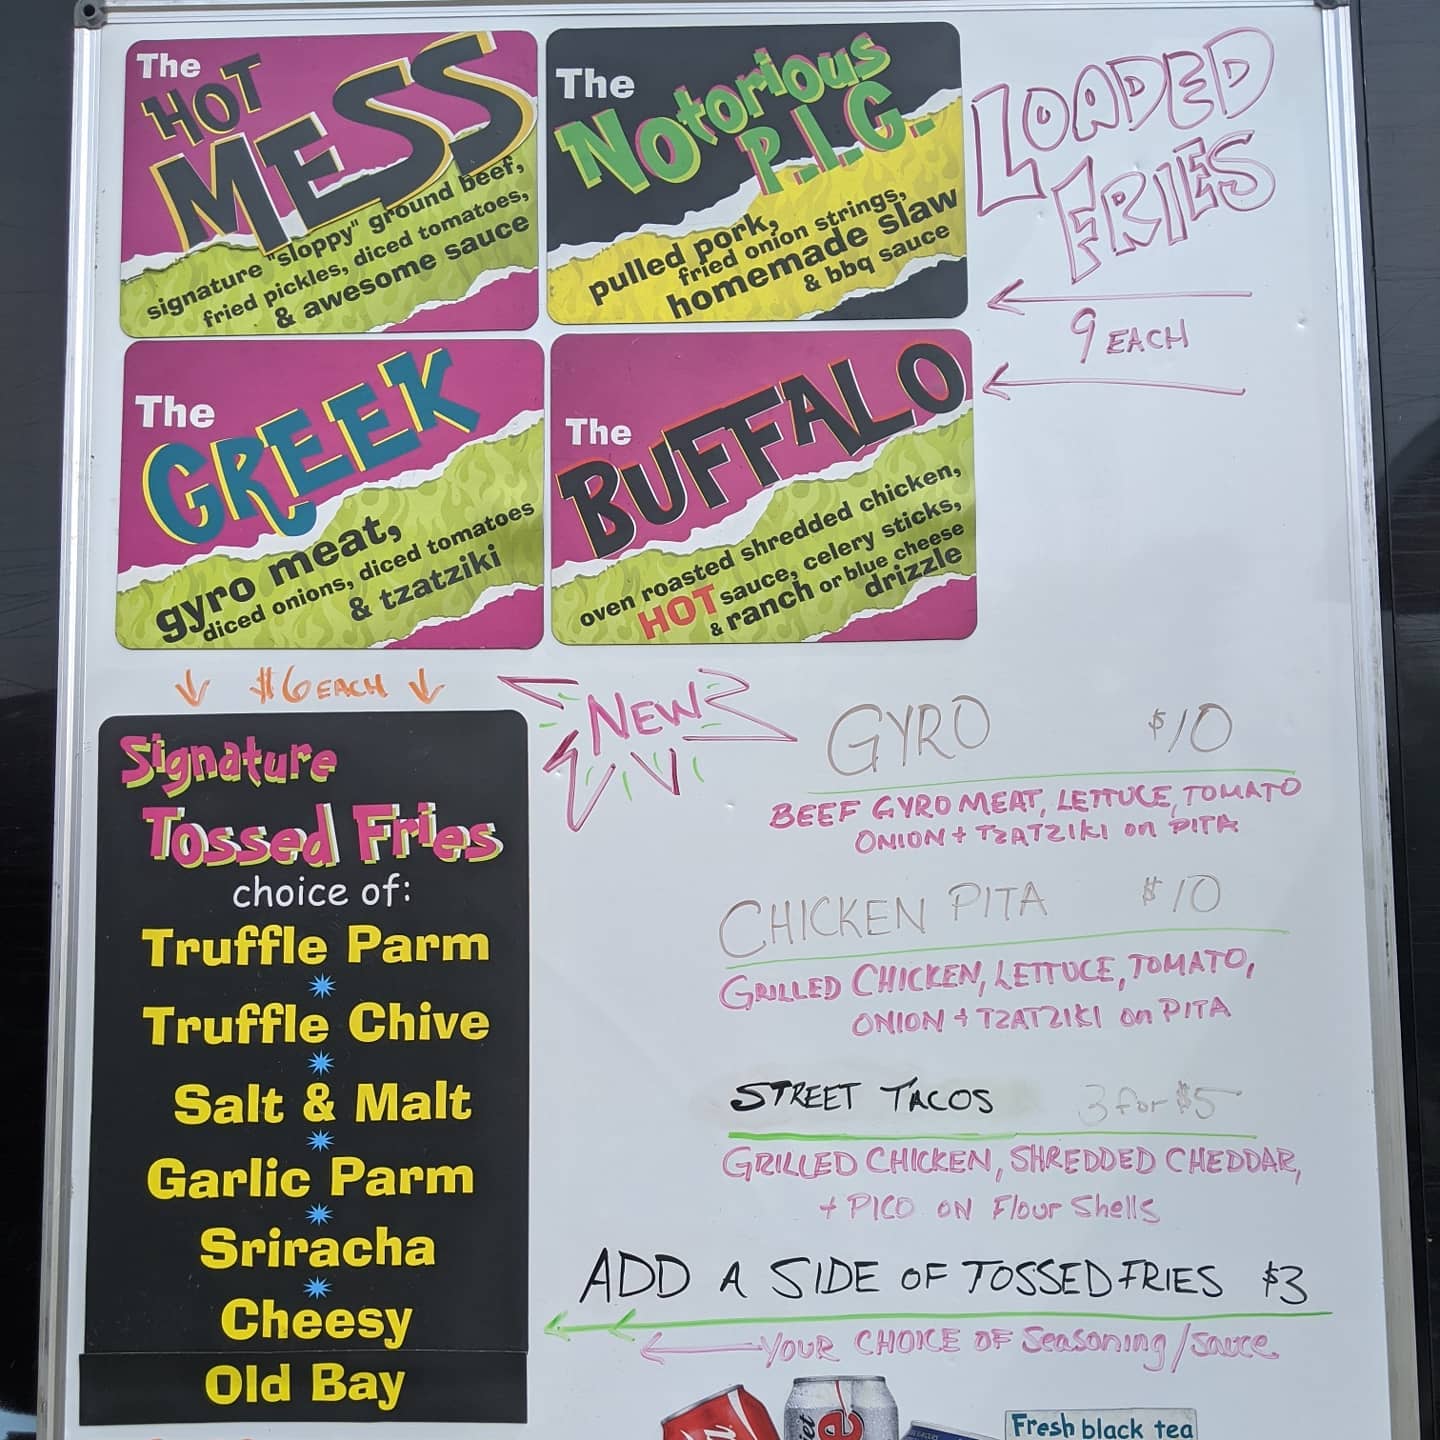 The
HOT
MESS
signature "sloppy" ground beef,
fried pickles, diced tomatoes,
& awesome sauce
The
Notorious
P.I.G.
pulled pork,
fried onion strings,
homemade slaw
& bbq sauce
LOADED
FRIES
9 EACH
The
GREEK
gyro meat,
diced onions, diced tomatoes
& tzatziki
The
BUFFALO
oven roasted shredded chicken,
HOT sauce, celery sticks,
& ranch or blue cheese
drizzle
$6 EACH
Signature
Tossed Fries
choice of:
Truffle Parm
Truffle Chive
Salt & Malt
Garlic Parm
Sriracha
Cheesy
Old Bay
NEW
GYRO $10
BEEF GYRO MEAT, LETTUCE, TOMATO
ONION + TZATZIKI on PITA
CHICKEN PITA $10
GRILLED CHICKEN, LETTUCE, TOMATO,
ONION + TZATZIKI on PITA
STREET TACOS 3 for $5
GRILLED CHICKEN, SHREDDED CHEDDAR,
+ PICO ON Flour Shells
ADD A SIDE OF TOSSED FRIES $3
YOUR CHOICE OF Seasoning/Sauce
Fresh black tea